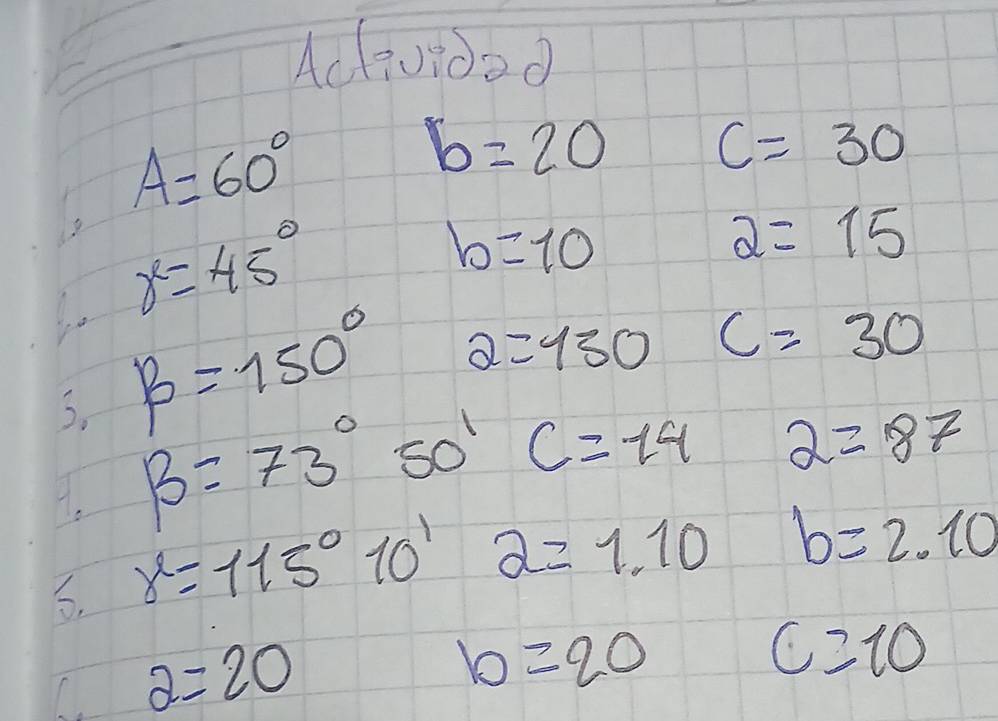 Actividad
1. A=60° b=20 C= 30
2. γ=45° b=10 a= 15
3. β=150° a=150 C= 30
4. β=73° 50' C=14 a=87
5. γ=115° 10' a=1.10 b=2.10
a=20 b=20 C=10